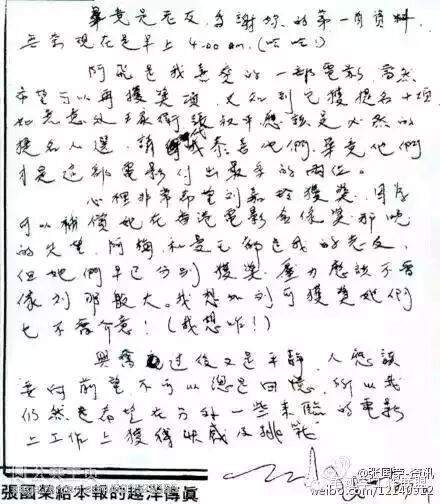 畢竟是老友，多謝妳的第一有資料，
無奈現在是早上 4:00 am.(哈哈!)
阿飛是我喜愛的一部電影，當然
希望可以再獲獎項，又知到它獲提名十項
如意處，張叔平應該是必然的
提名人選，請恭喜他們，畢竟他們
是這部電影付出最多的兩位。
心裡非常希望劉嘉玲獲獎，因為
可以補償她在香港電影金像獎那晚
的失望，阿梅和曼玉都是我的老友，
但她們早已分別獲獎，壓力應該不會
像劉那般大。我想如劉可獲獎她們
也不會介意!(我想咋!)
興奮過後又是平靜，人應該
要向前望，不可以總是回憶，所以我
仍然是希望在另外一些來臨的電影
上工作上獲得快感及挑戰
張國榮給本報的越洋傳真
@张国荣-奇讯
weibo.com/12140912